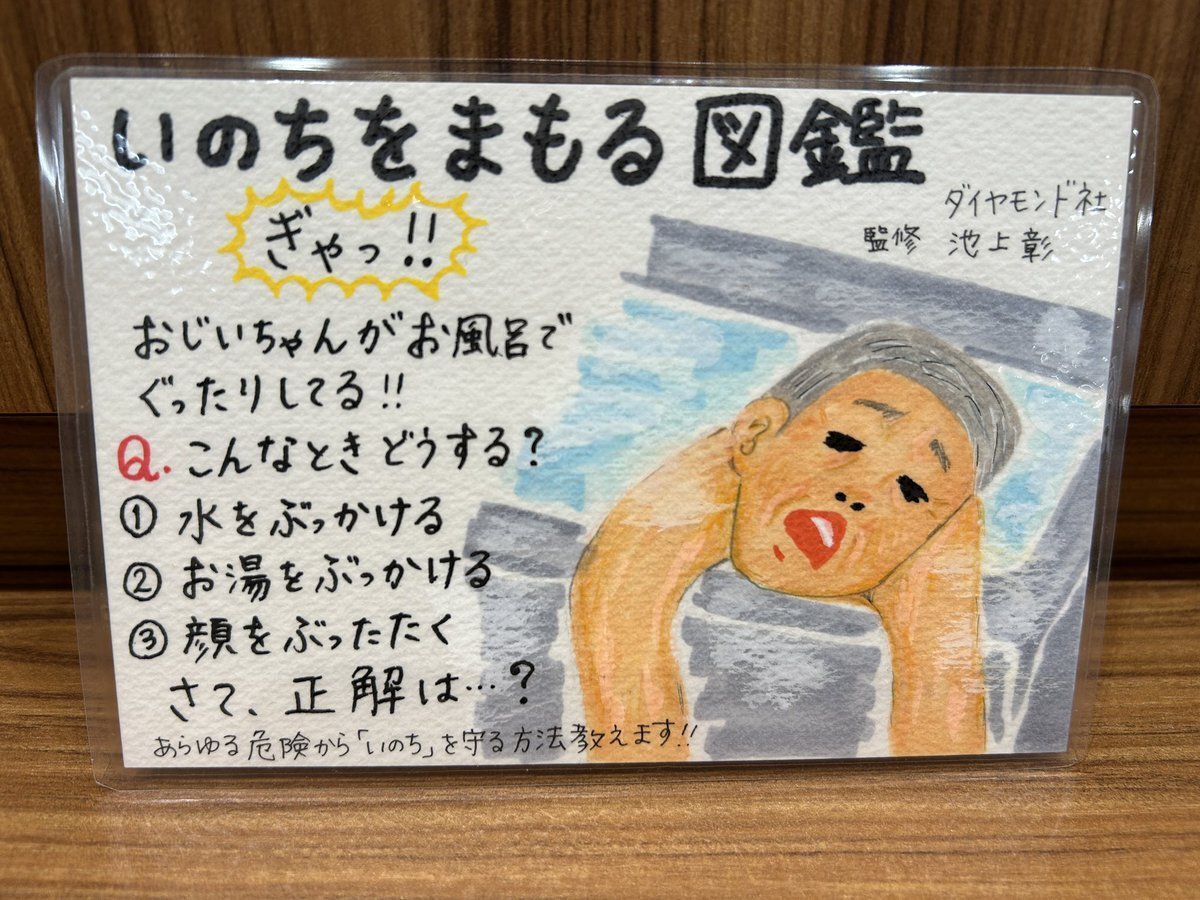 いのちをまもる図鑑
ダイヤモンド社
監修 池上彰
ぎゃっ!!
おじいちゃんがお風呂で
ぐったりしてる!!
Q.こんなときどうする?
① 水をぶっかける
② お湯をぶっかける
③ 顔をぶったたく
さて、正解は…?
あらゆる危険から「いのち」を守る方法教えます!!